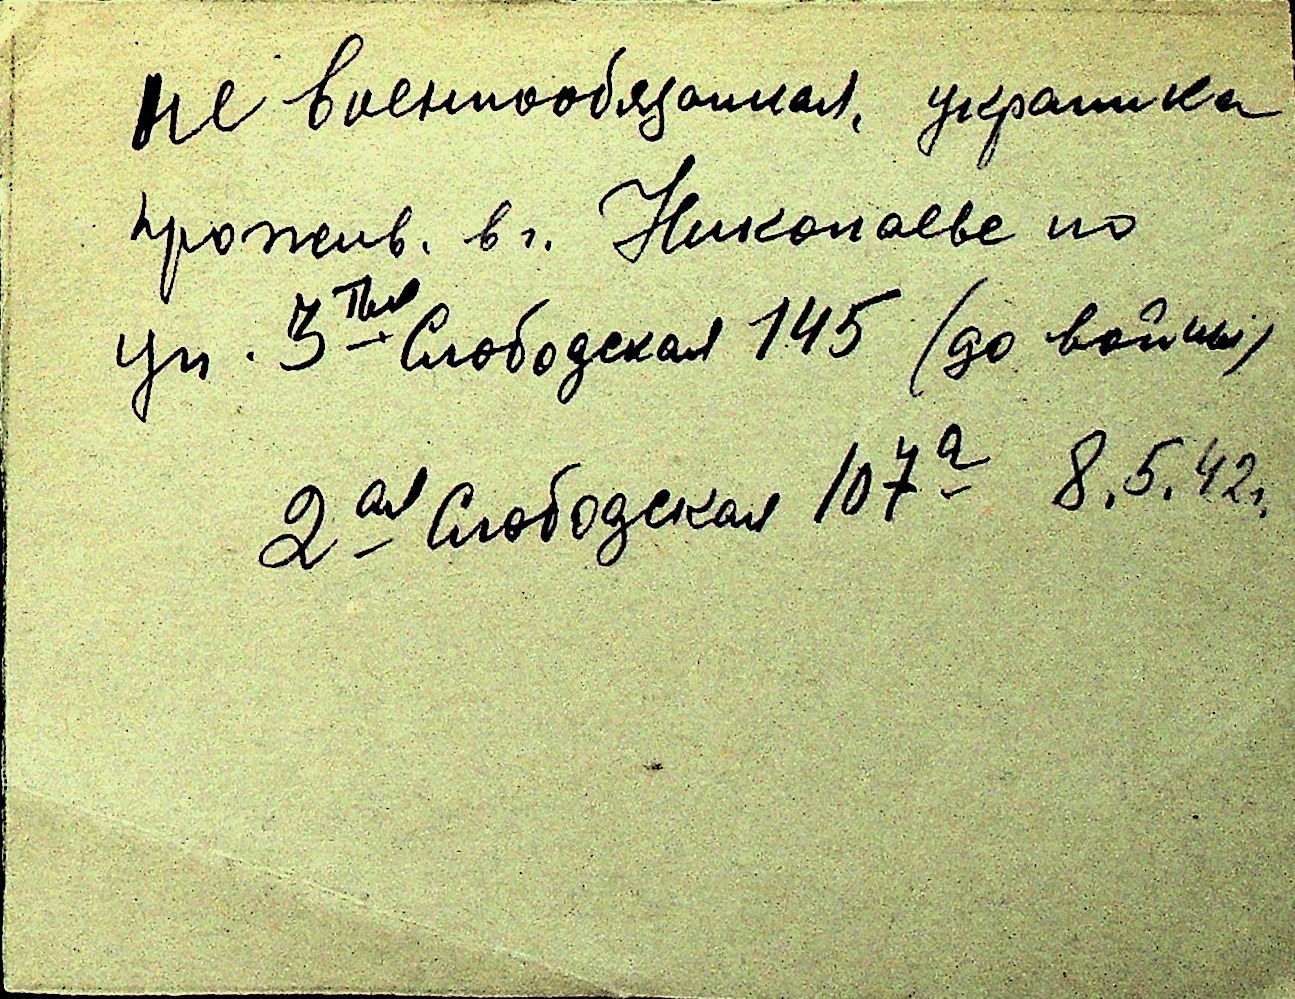 не военнообязанная, украинка
прожив. в г. Николаеве по
ул. 3тья Слободская 145 (до войны)
2ая Слободская 107а 8.5.42г.